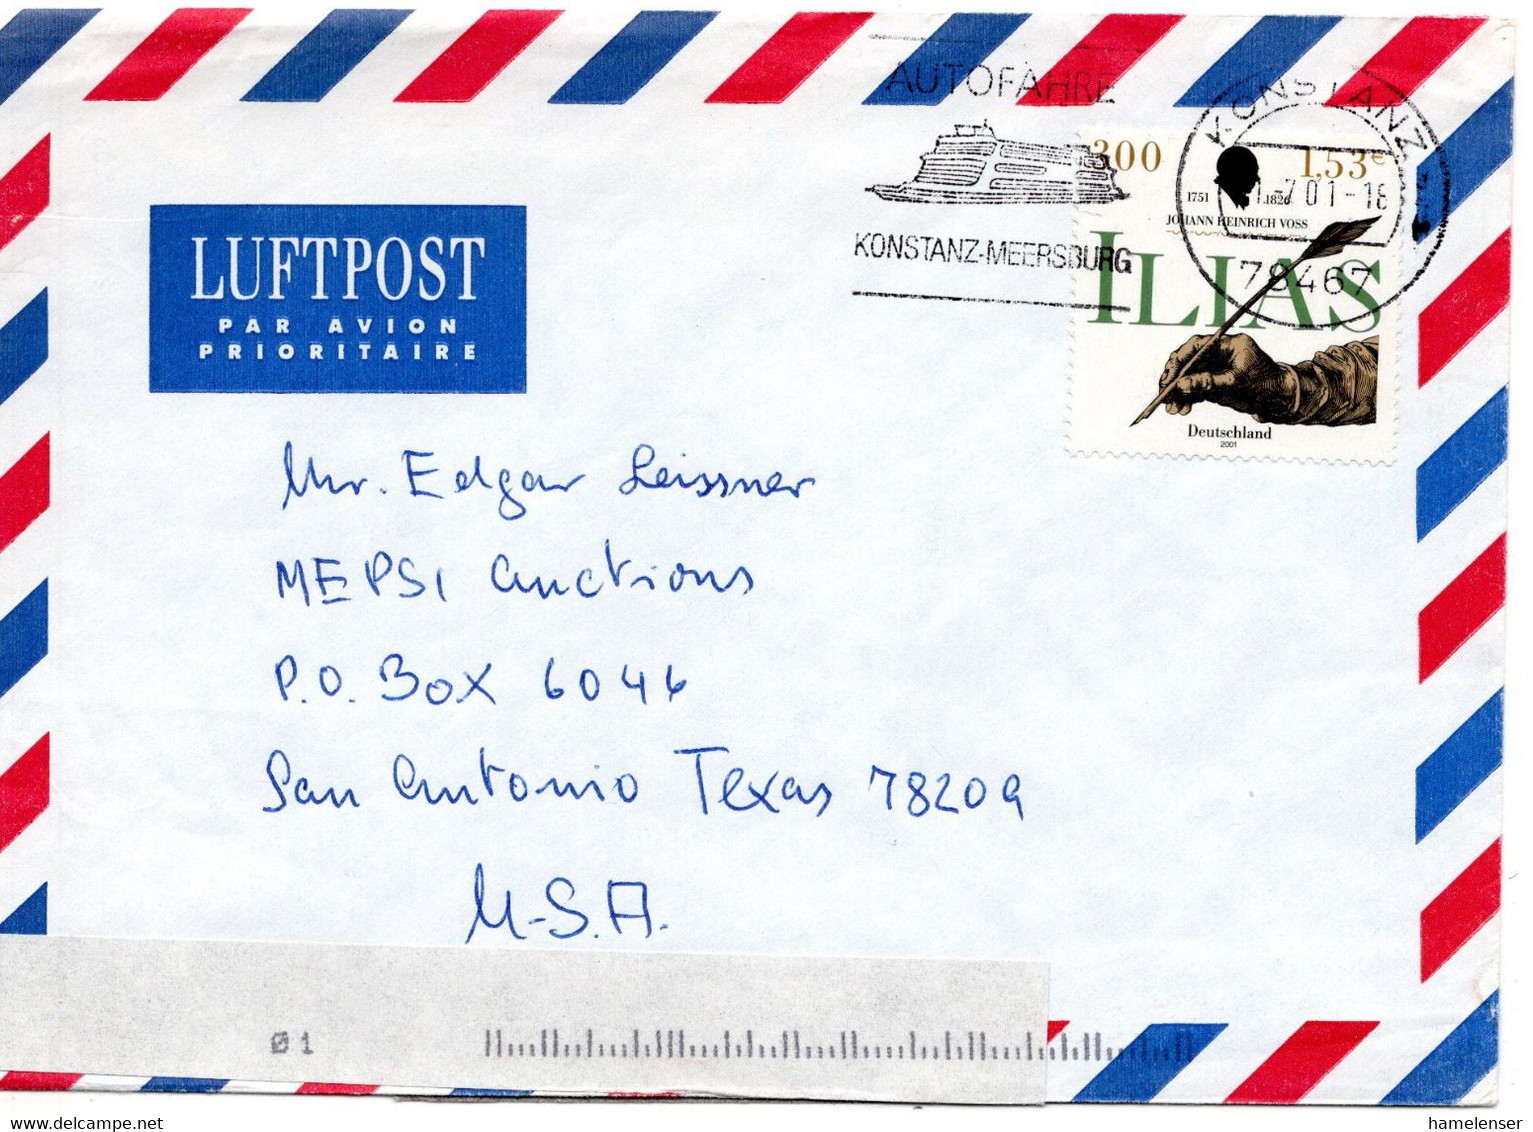 AUTOFÄHRE
KONSTANZ-MEERSBURG
KONSTANZ
-7 01-18
78467
300
1,53€
1751 1826
JOHANN HEINRICH VOSS
ILIAS
Deutschland
2001
LUFTPOST
PAR AVION
PRIORITAIRE
Mr. Edgar Leissner
MEPSI Auctions
P.O. Box 6046
San Antonio Texas 78209
U.S.A.
01
www.delcampe.net
hamelenser